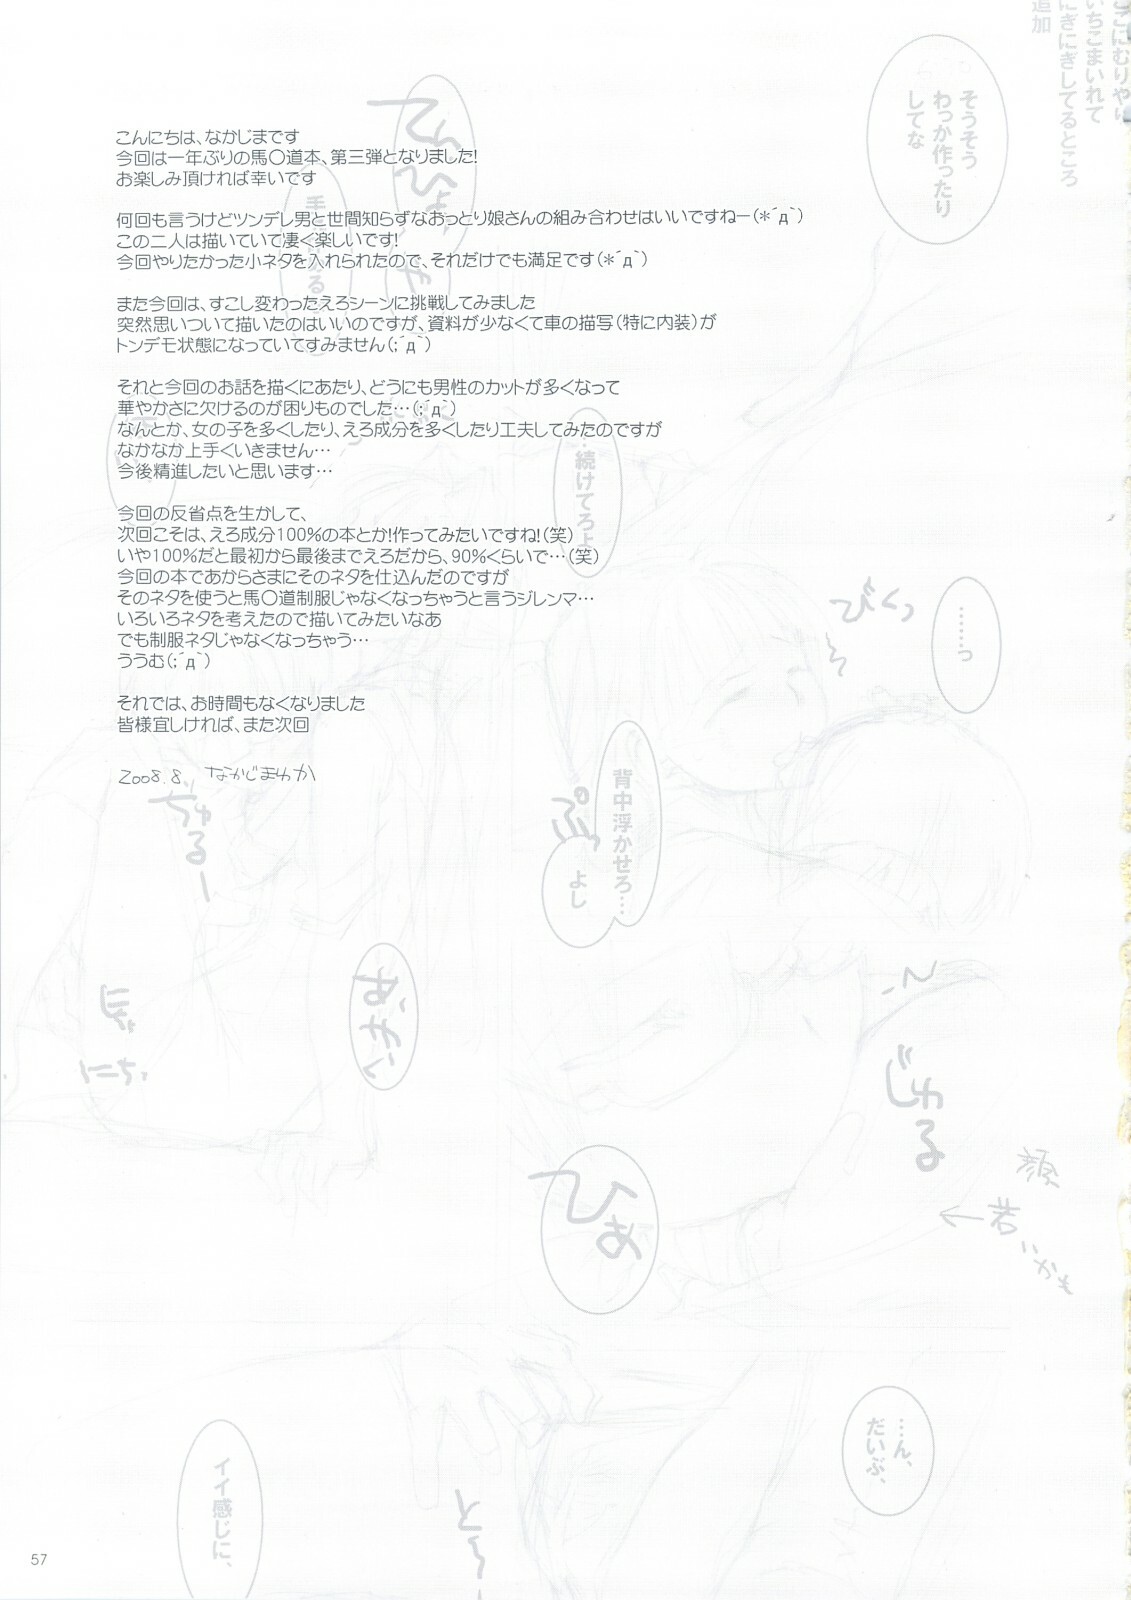 こんにちは、なかじまです
今回は一年ぶりの馬〇道本、第三弾となりました!
お楽しみ頂ければ幸いです
何回も言うけどツンデレ男と世間知らずなおっとり娘さんの組み合わせはいいですねー(*´д`)
この二人は描いていて凄く楽しいです!
今回やりたかった小ネタを入れられたので、それだけでも満足です(*´д`)
また今回は、すこし変わったえろシーンに挑戦してみました
突然思いついて描いたのはいいのですが、資料が少なくて車の描写(特に内装)が
トンデモ状態になっていてすみません(;´д`)
それと今回のお話を描くにあたり、どうにも男性のカットが多くなって
華やかさに欠けるのが困りものでした…(;´д`)
なんとか、女の子を多くしたり、えろ成分を多くしたり工夫してみたのですが
なかなか上手くいきません…
今後精進したいと思います…
今回の反省点を生かして、
次回こそは、えろ成分100%の本とか!作ってみたいですね!(笑)
いや100%だと最初から最後までえろだから、90%くらいで…(笑)
今回の本であからさまにそのネタを仕込んだのですが
そのネタを使うと馬〇道制服じゃなくなっちゃうと言うジレンマ…
いろいろネタを考えたので描いてみたいなあ
でも制服ネタじゃなくなっちゃう…
ううむ(;´д`)
それでは、お時間もなくなりました
皆様宜しければ、また次回
2008.8. なかじまゆか
ここにむりやり
いちこまいれて
にぎにぎしてるところ
追加
そうそう
わっか作ったり
してな
てん
ひょ
…続けてろよ
びくっ
……っ
背中浮かせろ…
ぷっ
よし
ちゅるー
あ、や
じゅる
ひぁ
顔
苦
いかも
←
…ん、
だいぶ、
イイ感じに、
57